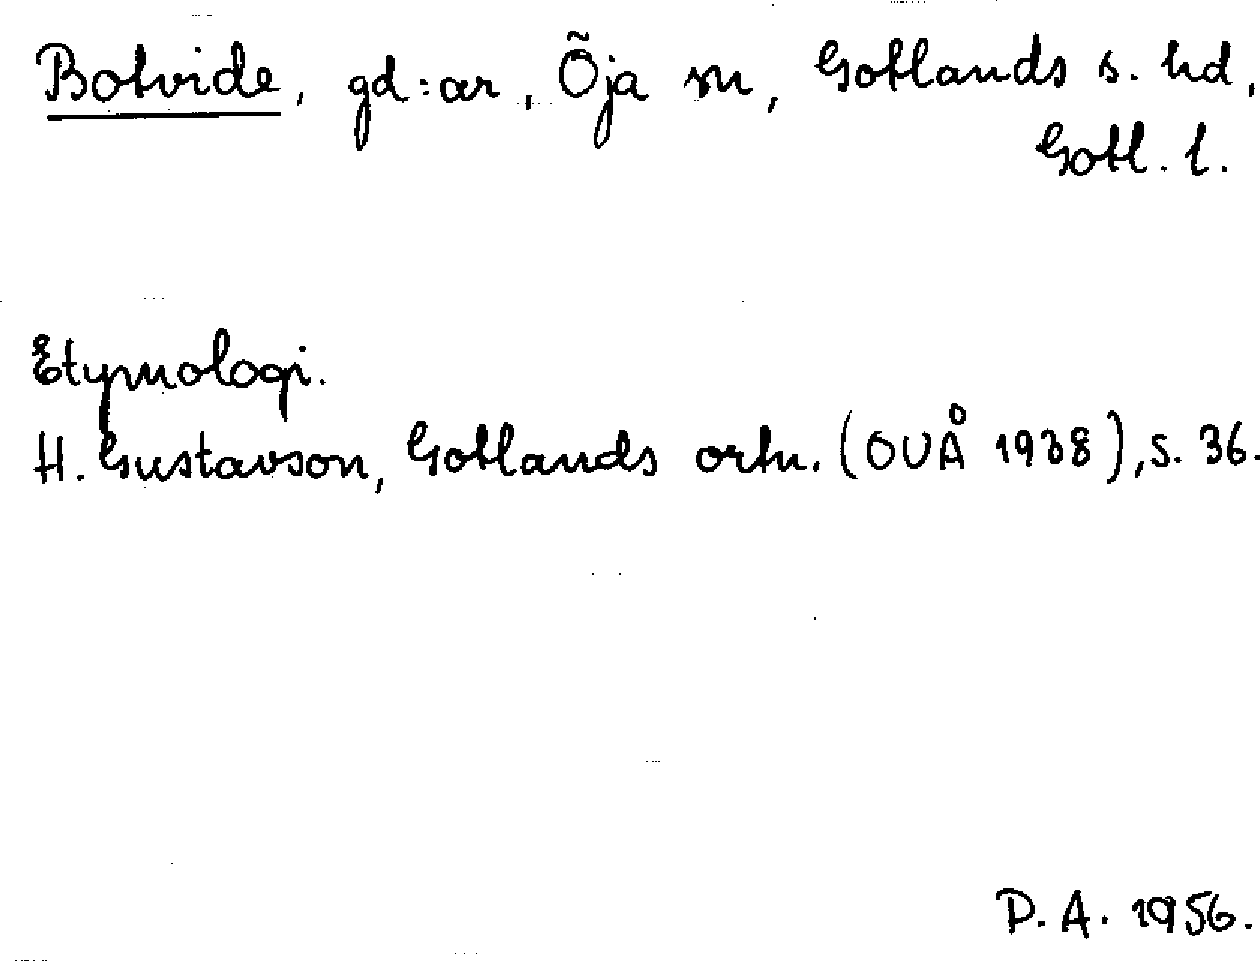 Botvide, gd:ar, Öja sn, Gotlands s. hd,
Gotl. l.
Etymologi.
H. Gustavson, Gotlands ortn. (OUÅ 1938), s. 36.
P. A. 1956.